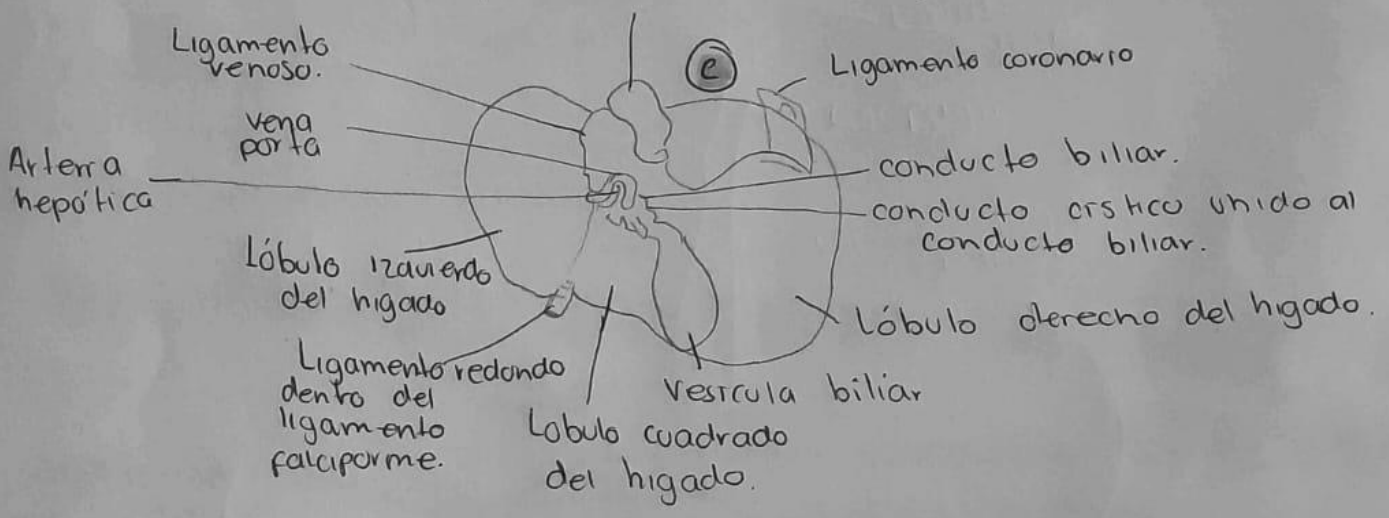 Ligamento
venoso.
e
Ligamento coronario
vena
porta
Arteria
hepática
conducto biliar.
conducto cístico unido al
conducto biliar.
Lóbulo izquierdo
del higado
Lóbulo derecho del higado.
Ligamento redondo
dento del
ligamento
falciporme.
Vesícula biliar
Lobulo cuadrado
del higado.